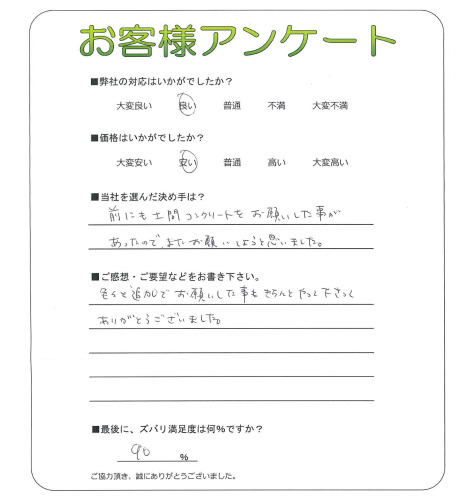 お客様アンケート
■弊社の対応はいかがでしたか？
大変良い 良い 普通 不満 大変不満
■価格はいかがでしたか？
大変安い 安い 普通 高い 大変高い
■当社を選んだ決め手は？
前にも土間コンクリートをお願いした事が
あったので、またお願いしようと思いました。
■ご感想・ご要望などをお書き下さい。
色々と追加でお願いした事もきちんとやって下さって
ありがとうございました。
■最後に、ズバリ満足度は何%ですか？
90 %
ご協力頂き、誠にありがとうございました。